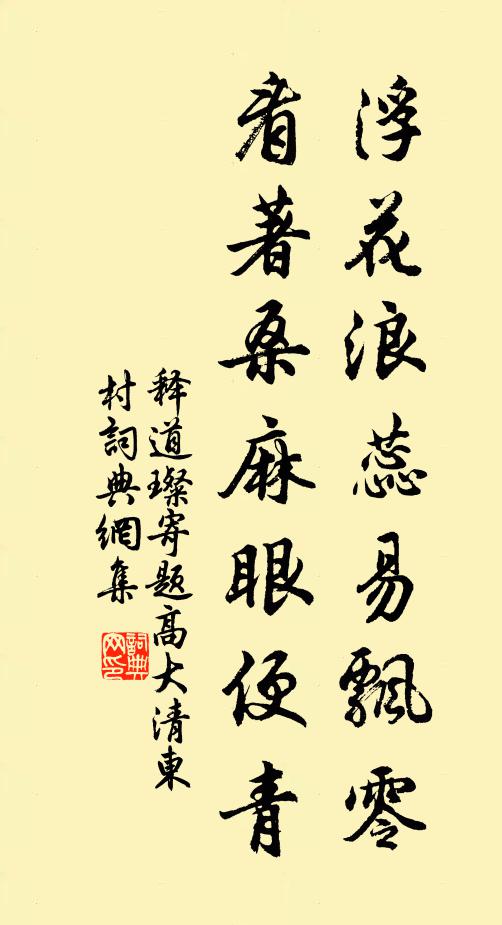 浮花浪蕊易飄零
看著桑麻眼便青
释道璨寄题高大清東
村詞典網集
詞典网印